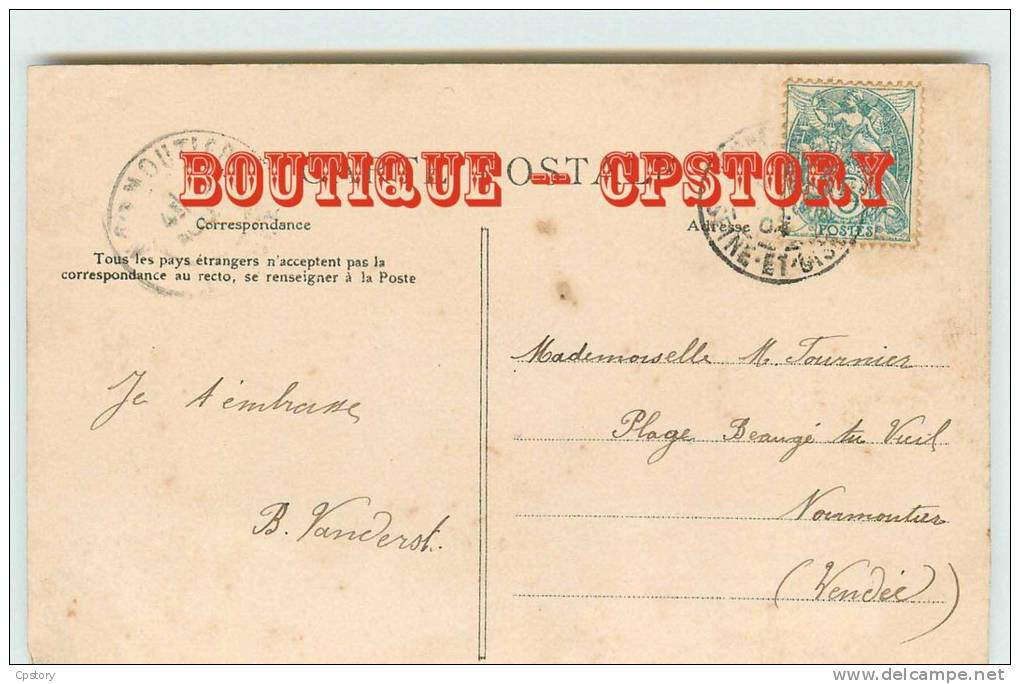 BOUTIQUE — CPSTORY
CARTE POSTALE
Correspondance
Adresse
Tous les pays étrangers n'acceptent pas la
correspondance au recto, se renseigner à la Poste
POSTES
04
SEINE-ET-OISE
Je t'embrasse
B. Vanderst.
Mademoiselle M. Tournier
Plage Beaugé du Vieil
Noirmoutier
(Vendée)
Cpstory
www.delcampe.net